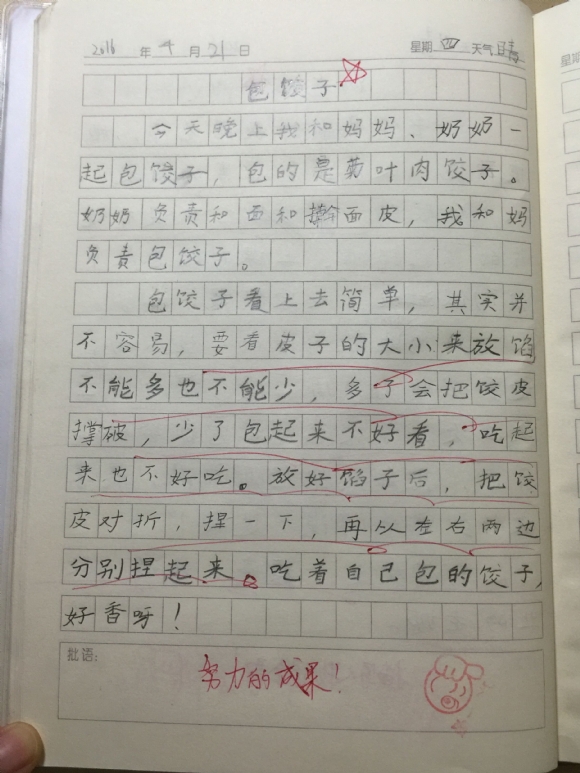 2016 年 4 月 21 日 星期 四 天气 晴
包饺子
今天晚上我和妈妈、奶奶一
起包饺子，包的是芴叶肉饺子。
奶奶负责和面和擀面皮，我和妈
负责包饺子。
包饺子看上去简单，其实并
不容易，要看皮子的大小来放馅
不能多也不能少，多了会把饺皮
撑破，少了包起来不好看，吃起
来也不好吃。放好馅子后，把饺
皮对折，捏一下，再从左右两边
分别捏起来。吃着自己包的饺子，
好香呀！
批语：
努力的成果！
星期